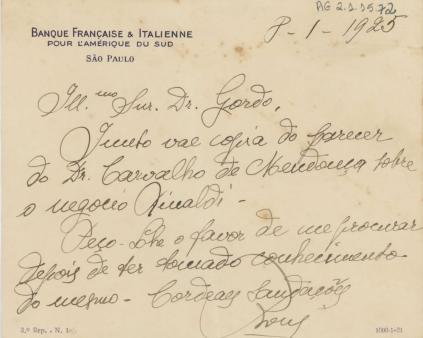 AG 2.1.15.72
BANQUE FRANÇAISE & ITALIENNE
POUR L'AMÉRIQUE DU SUD
SÃO PAULO
8-1-1925
Ill.mo Snr. Dr. Gordo,
Junto vae copia do parecer
do Dr. Carvalho de Mendonça sobre
o negocio Rinaldi -
Peço-lhe o favor de me procurar
depois de ter tomado conhecimento
do mesmo - Cordeaes Saudações
2,ª Sep. - N.
1000-1-21